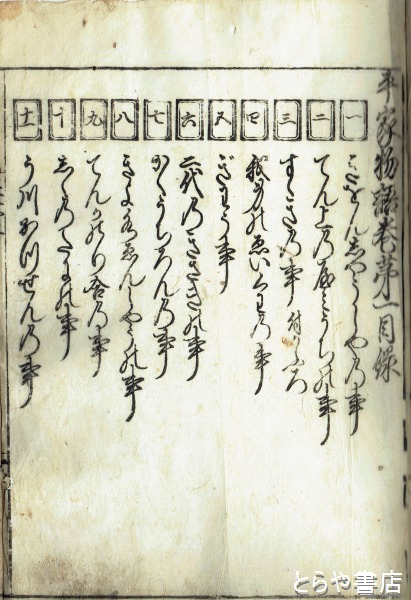 平家物語巻第一目録
一 ぎをんしやうじやの事
二 てん上のやみうちの事
三 すゞきの事付かぶろ
四 我身のゑいぐわの事
五 ぎわう事
六 二代のきさきの事
七 がくうちろんの事
八 きよ水ゑんしやうの事
九 てんがののり合の事
十 しゝの谷の事
十一 う川かつせんの事
とらや書店